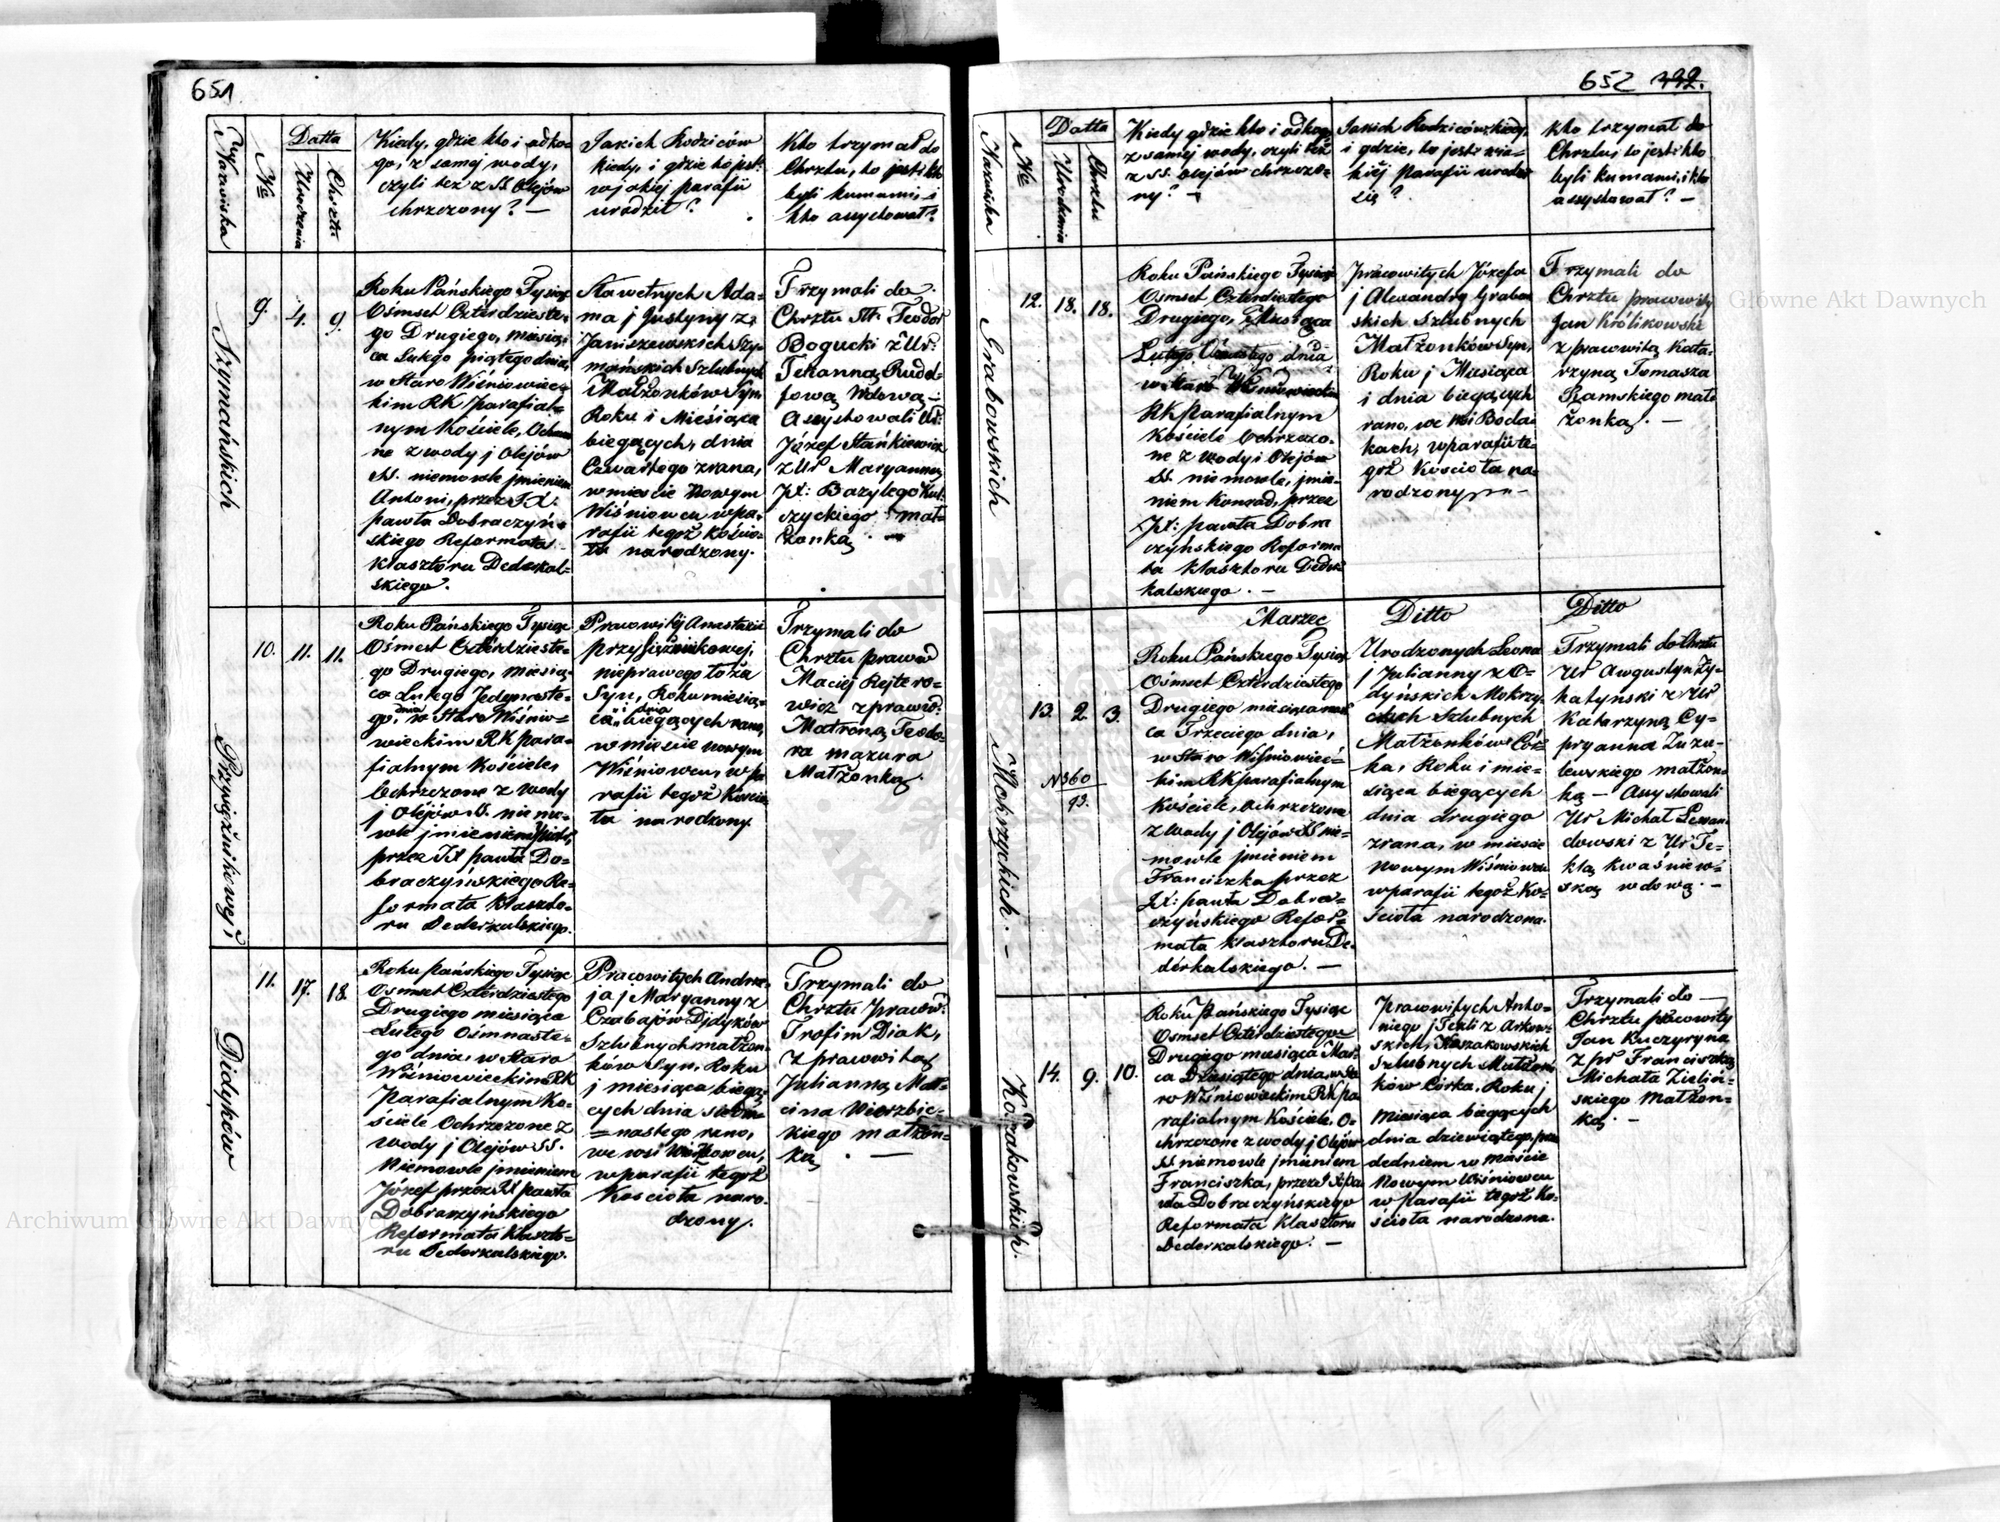 651
Nazwiska
№
Datta
Urodzenia
Chrztu
Kiedy, gdzie kto i od ko-
go, z samej wody,
czyli też z SS Olejów
chrzczony? —
Jakich Rodziców
kiedy, i gdzie to jest:
w jakiej parafii
urodził?
Kto trzymał do
Chrztu, to jest: kto
byli kumami, i
kto assystował?
Szymańskich
9.
4.
9.
Roku Pańskiego Tysiąc
Ośmset Czterdzieste-
go Drugiego, miesią-
ca Lutgo piątego dnia,
w Staro Wiśniowiec-
kim RK Parafial-
nym Kościele, Ochrzczo-
ne z wody j Olejów
SS. niemowle jmieniem
Antoni, przez JX.
pawła Dobraczyń-
skiego Reformata
klasztoru Dederkal-
skiego.
Sławetnych Ada-
ma j Justyny z
Janiszewskich Szy-
mańskich Szlubnych
Małżonków Syn
Roku i Miesiąca
biegących, dnia
Czwartego zrana,
w mieście Nowym
Wiśniowcu w pa-
rafii tegoż Kościo-
ła narodzony.
Trzymali do
Chrztu Teodor
Bogucki z Ur:
Teklanną Rudol-
fową Wdową —
Assystowali Ur:
Józef Stańkiewicz
z Ur Maryanną
JX: Bazylego Kul-
czyckiego mał-
żonką. —
Przysiężnikowej
10.
11.
11.
Roku Pańskiego Tysiąc
Ośmset Czterdzieste-
go Drugiego, miesią-
ca Lutego Jedenaste-
go, dnia w Staro Wiśnio-
wieckim RK para-
fialnym Kościele,
Ochrzczone z wody
j Olejów SS. niemo-
wle jmieniem
przez JX pawła Do-
braczyńskiego Re-
formata klaszto-
ru Dederkalskiego.
Pracowitej Anastazii
przysiężnikowej,
nieprawego łoża
Syn, Roku miesią-
ca i dnia biegących rano,
w mieście nowym
Wiśniowcu, w pa
rafii tegoż Kościo
ła narodzony.
Trzymali do
Chrztu praw
Maciej Rejtero-
wicz z praw
Matroną Teodo-
ra mazura
Małżonką.
Didyków
11.
17.
18.
Roku pańskiego Tysiąc
Osmset Czterdziestego
Drugiego miesiąca
Lutego Osmnaste-
go dnia, w Staro
Wiśniowieckim RK
Parafialnym Ko-
ściele Ochrzczone z
wody j Olejów SS.
Niemowle jmieniem
Józef przez JX pawła
Dobraczyńskiego
Reformata Klaszto-
ru Dederkalskiego.
Pracowitych Andrze-
ja j Maryanny z
Czabajów Didyków
Szlubnych małżon-
ków Syn, Roku
j miesiąca biegą-
cych dnia siedm-
=nastego rano,
we wsi Wiśniowcu,
w parafii tegoż
Kościoła naro-
dzony.
Trzymali do
Chrztu Pracow:
Trofim Diak,
z prawwitą
Julianną Mar-
cina Wierzbic-
kiego małżon-
ką. —
652 792.
Nazwiska
№
Datta
Urodzenia
Chrztu
Kiedy gdzie kto i od kogo,
z samej wody, czyli też
z SS. Olejów chrzczo-
ny? —
Jakich Rodziców kiedy,
i gdzie, to jest: w ja-
kiej Parafii urodził
się?
Kto trzymał do
Chrztu, to jest: kto
byli kumami, i kto
assystował? —
Grabowskich
12.
18.
18.
Roku Pańskiego Tysiąc
Osmset Czterdziestego
Drugiego, Miesiąca
Lutego dnia
w Staro Wiśniowieckim
RK Parafialnym
Kościele Ochrzczo-
ne z wody i Olejów
SS niemowle, jmie-
niem Konrad, przez
JX: pawła Dobra
czyńskiego Reforma
ta klasztoru Deder-
kalskiego. —
Pracowitych Józefa
j Alexandry Grabow
skich Szlubnych
Małżonków Syn,
Roku j Miesiąca
i dnia biegących
rano, we wsi Boda-
kach, w parafii te-
goż Kościoła na-
rodzony —
Trzymali do
Chrztu pracowity
Jan Królikowski
z pracowitą Kata-
rzyną Tomasza
Ramskiego mał-
żonką. —
Marzec
Ditto
Ditto
Mokrzyckich. —
13.
2.
3.
N360
93.
Roku Pańskiego Tysiąc
Ośmset Czterdziestego
Drugiego miesiąca mar
ca Trzeciego dnia,
w Staro Wiśniowiec-
kim RK parafialnym
Kościele, Ochrzczone
z Wody j Olejów SS nie-
mowle jmieniem
Franciszka przez
JX: pawła Dobra-
czyńskiego Refor-
mata klasztoru De-
derkalskiego. —
Urodzonych Leona
j Julianny z O-
dyńskich Mokrzy-
ckich Szlubnych
Małżonków Cór-
ka, Roku i mie-
siąca biegących
dnia drugiego
zrana, w mieście
Nowym Wiśniowcu
w parafii tegoż Ko-
ścioła narodzona.
Trzymali do Chrztu
Ur Augustyn Zy-
chatyński z Ur
Katarzyną Cy-
pryanna Zuzu-
lewskiego małżon-
ką — Assystowali
Ur Michał Lewan-
dowski z Ur Te-
klą Kwaśniew-
ską wdową. —
Kozakowskich.
14.
9.
10.
Roku Pańskiego Tysiąc
Osmset Czterdziestego
Drugiego miesiąca Mar-
ca Dziesiątego dnia, w Sta
ro Wiśniowieckim RK pa
rafialnym Kościele, O-
chrzczone z wody j Olejów
SS niemowle jmieniem
Franciszka, przez JX pa-
wła Dobraczyńskiego
Reformata klasztoru
Dederkalskiego. —
Pracowitych Anto-
niego j Tekli z Arkow-
skich, Kozakowskich
Szlubnych Małżon
ków Córka, Roku j
Miesiąca biegących
dnia dziewiątego, prze
dedniem w mieście
Nowym Wiśniowcu
w parafii tegoż Ko-
ścioła narodzona.
Trzymali do —
Chrztu pracowity
Jan Kuczyryna,
z pr Franciszką
Michała Zieliń-
skiego Małżon-
ką. —
Archiwum Główne Akt Dawnych
Główne Akt Dawnych